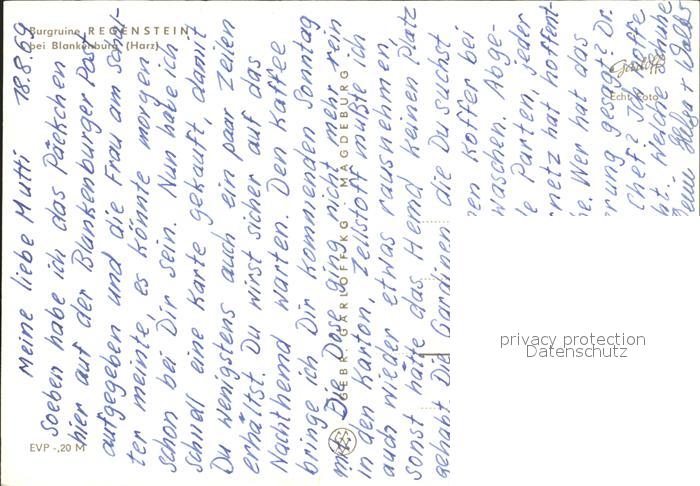 Burgruine REGENSTEIN
bei Blankenburg (Harz)
EVP -,20 M
GEBR. GARLOFF KG · MAGDEBURG
Garloff
Echt Foto
18.8.69
Meine liebe Mutti
Soeben habe ich das Päckchen
hier auf der Blankenburger Post
aufgegeben und die Frau am Schal-
ter meinte, es könnte morgen
schon bei Dir sein. Nun habe ich
schnell eine Karte gekauft, damit
Du wenigstens auch ein paar Zeilen
erhältst. Du wirst sicher auf das
Nachthemd warten. Den Kaffee
bringe ich Dir kommenden Sonntag
mit. Die Dose ging nicht mehr rein
in den Karton, Zellstoff mußte ich
auch wieder etwas rausnehmen
sonst hätte das Hemd keinen Platz
gehabt. Die Gardinen die Du suchst
Koffer bei
waschen. Abge-
Parten, jeder
netz hat hoffent-
Wer hat das
rung gesiegt? Dr.
Chef? Ich hoffe
Welche Schuhe
privacy protection
Datenschutz